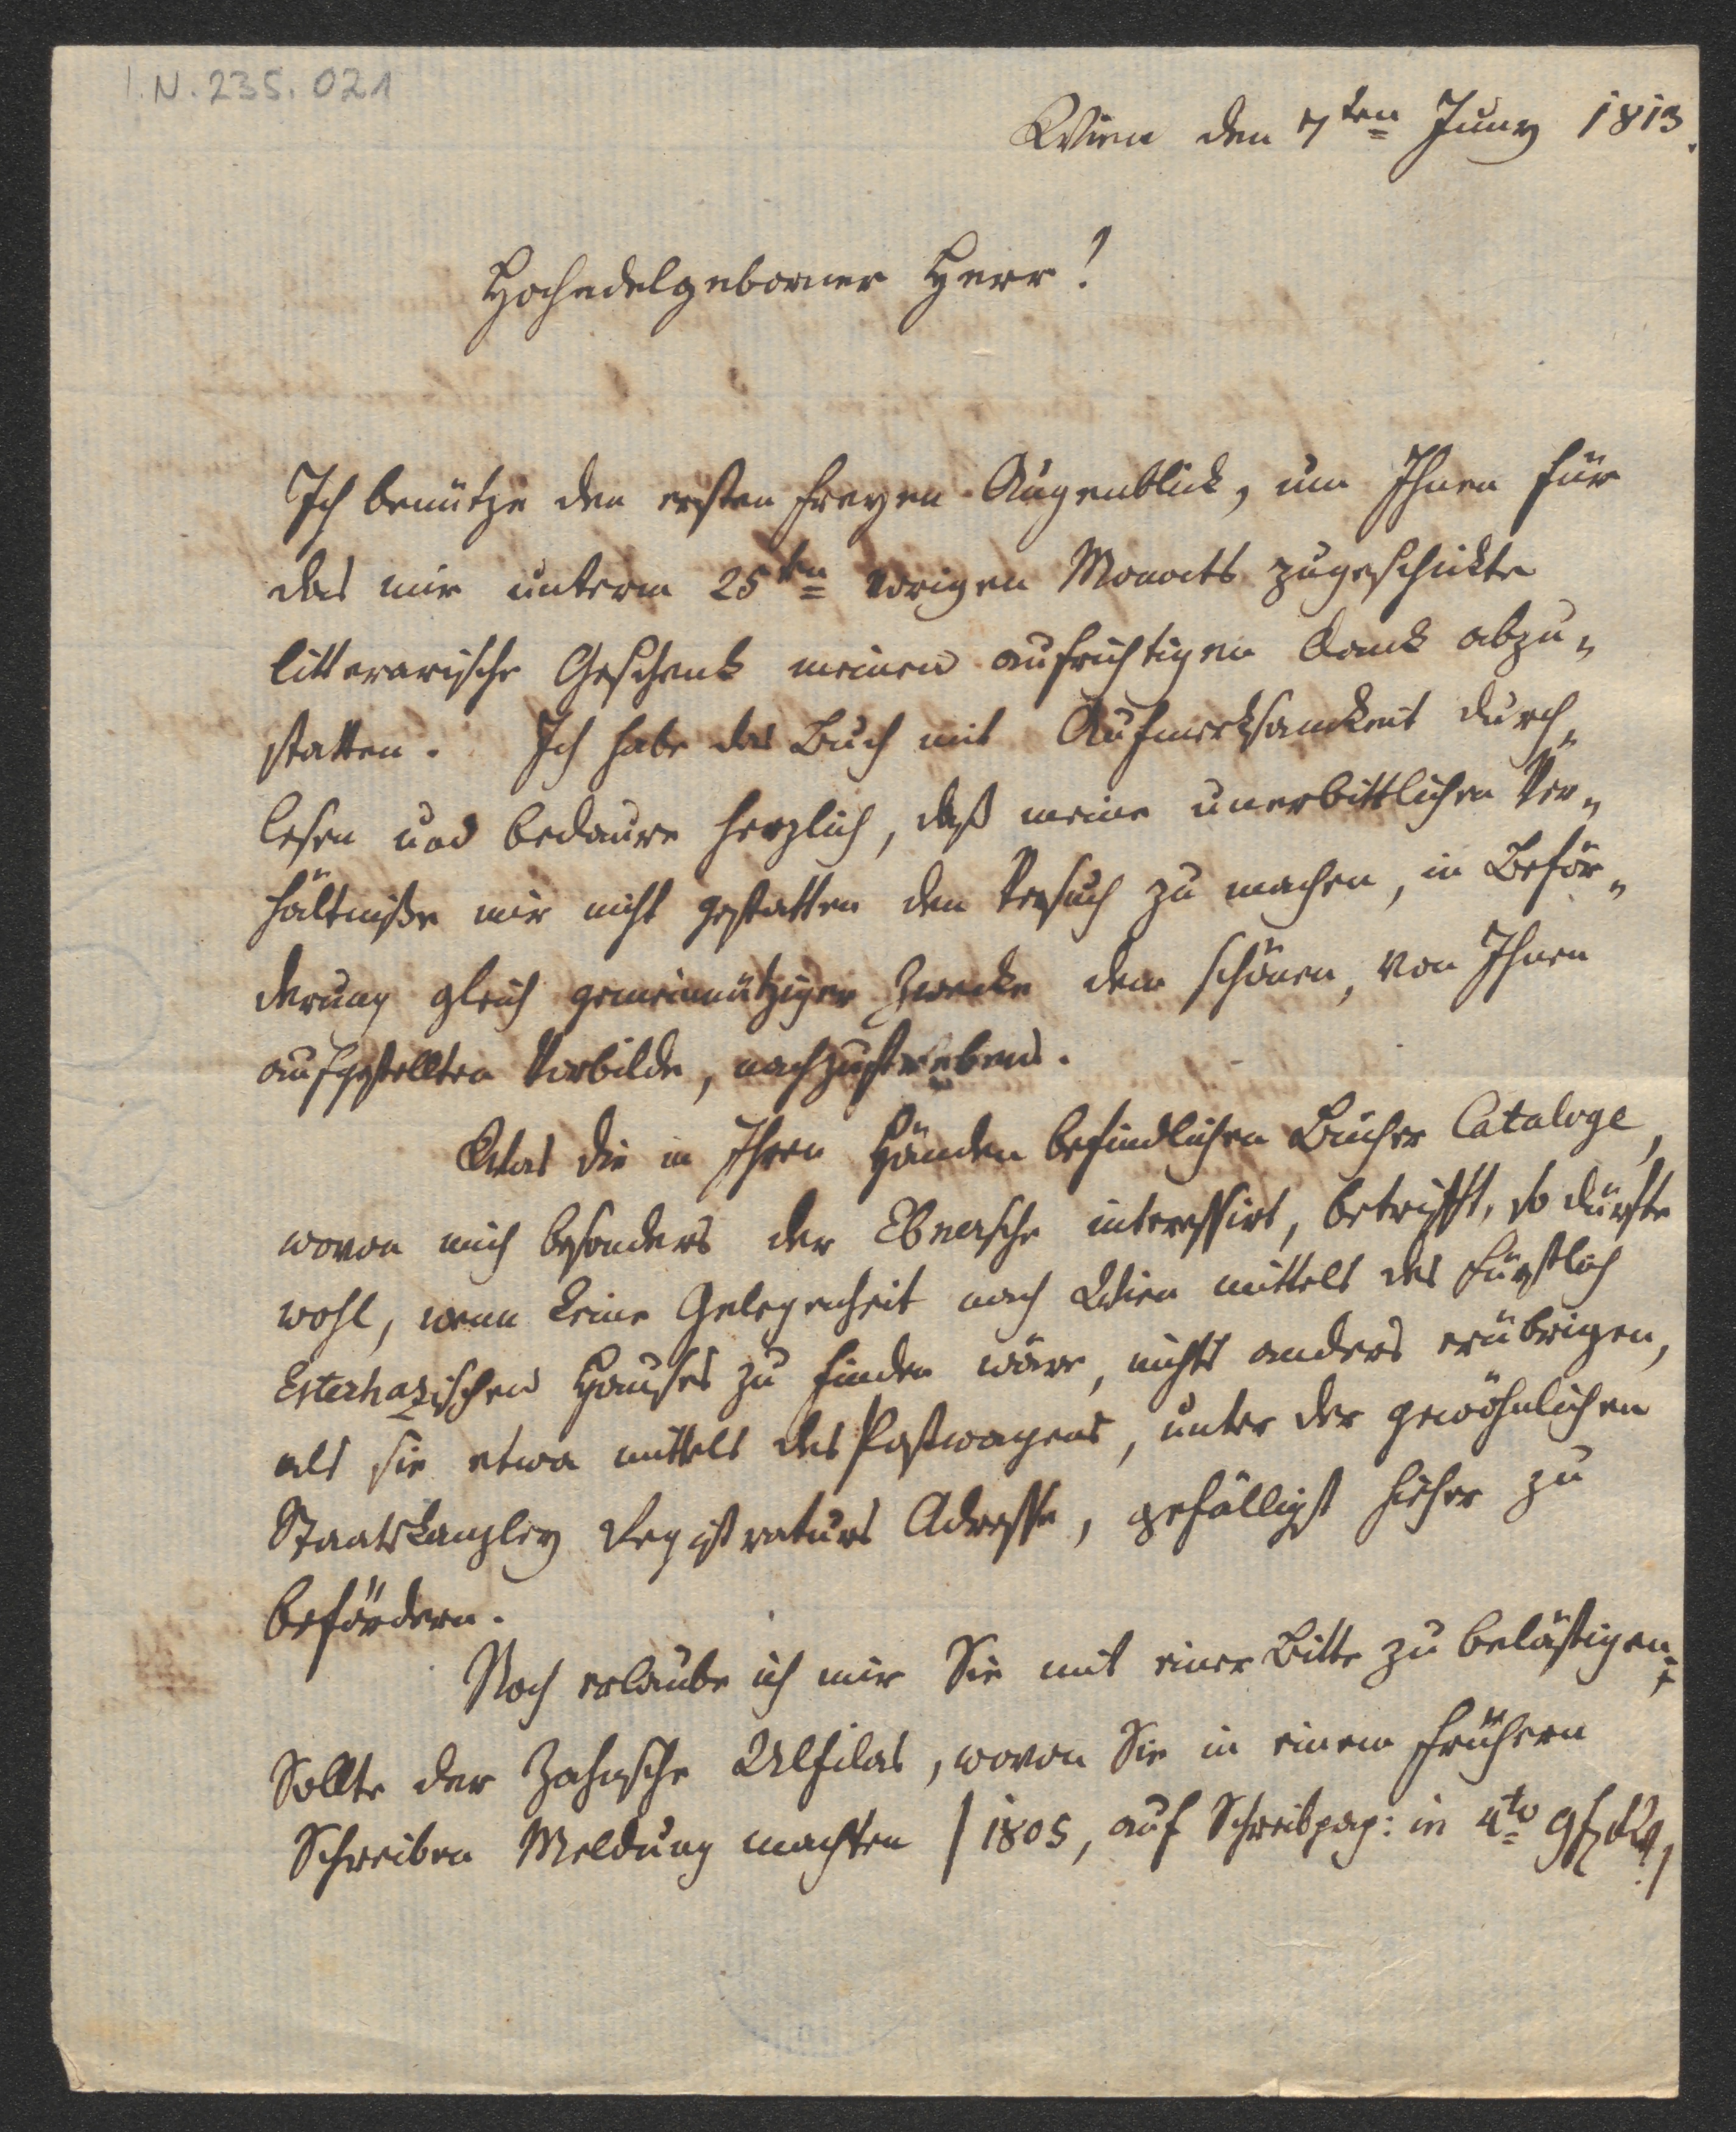 I.N. 235.021
Wien den 7ten Juny 1813.
Hochedelgeborner Herr!
Ich benütze den ersten freyen Augenblick, um Ihnen für
das mir unterm 25ten vorigen Monats zugeschickte
litterarische Geschenk meinen aufrichtigen Dank abzu„
statten. Ich habe das Buch mit Aufmerksamkeit durch„
lesen und bedaure herzlich, daß meine unerbittlichen Ver„
hältniße mir nicht gestatten den Versuch zu machen, in Beför„
derung gleich gemeinnütziger Zwecke dem schönen, von Ihnen
aufgestellten Vorbilde, nachzustreben.
Was die in Ihren Händen befindlichen Bücher Cataloge,
wovon mich besonders der Ebnersche interessirt, betrifft, so dürfte
wohl, wenn keine Gelegenheit nach Wien mittels des fürstlich
Esterhazischen Hauses zu finden wäre, nichts anders erübrigen,
als sie etwa mittels des Postwagens, unter der gewöhnlichen
Staatskanzley Registraturs Adresse, gefälligst hieher zu
befördern.
Noch erlaube ich mir Sie mit einer Bitte zu belästigen;
Sollte der Zahnsche Ulfilas, wovon Sie in einem frühern
Schreiben Meldung machten / 1805, auf Schreibpap: in 4to